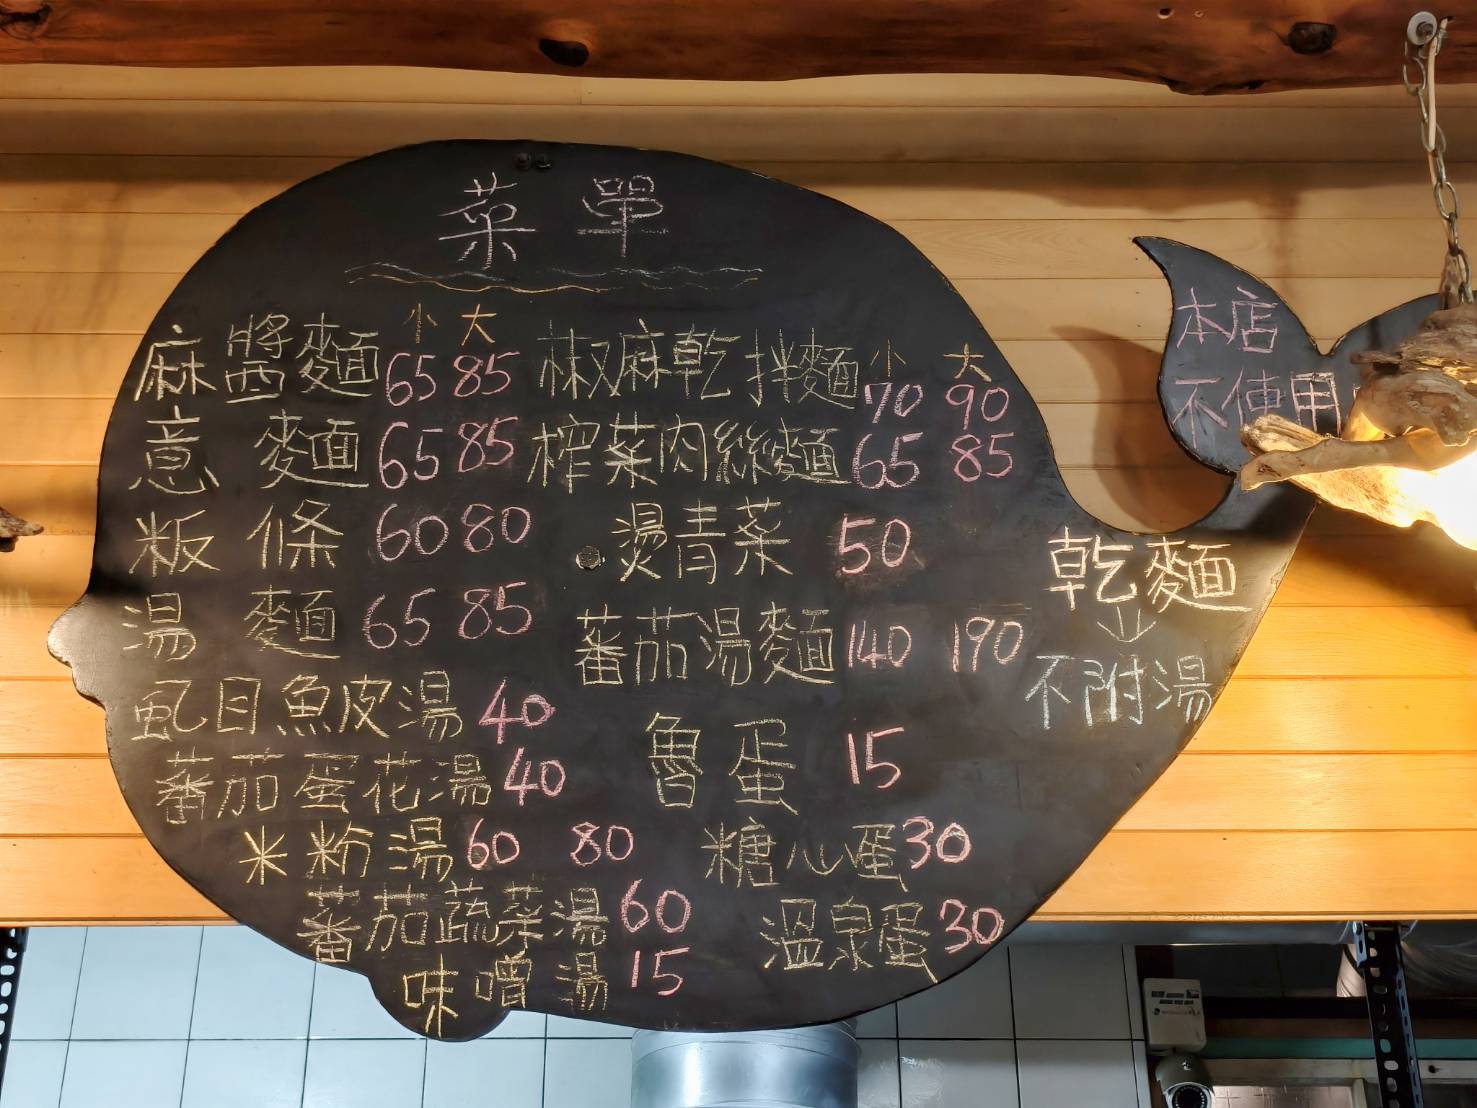 菜單
小 大
麻醬麵 65 85
意麵 65 85
粄條 60 80
湯麵 65 85
虱目魚皮湯 40
蕃茄蛋花湯 40
米粉湯 60 80
蕃茄蔬菜湯 60
味噌湯 15
小 大
椒麻乾拌麵 70 90
榨菜肉絲麵 65 85
燙青菜 50
蕃茄湯麵 140 190
魯蛋 15
糖心蛋 30
溫泉蛋 30
乾麵
↓
不附湯
本店
不使用